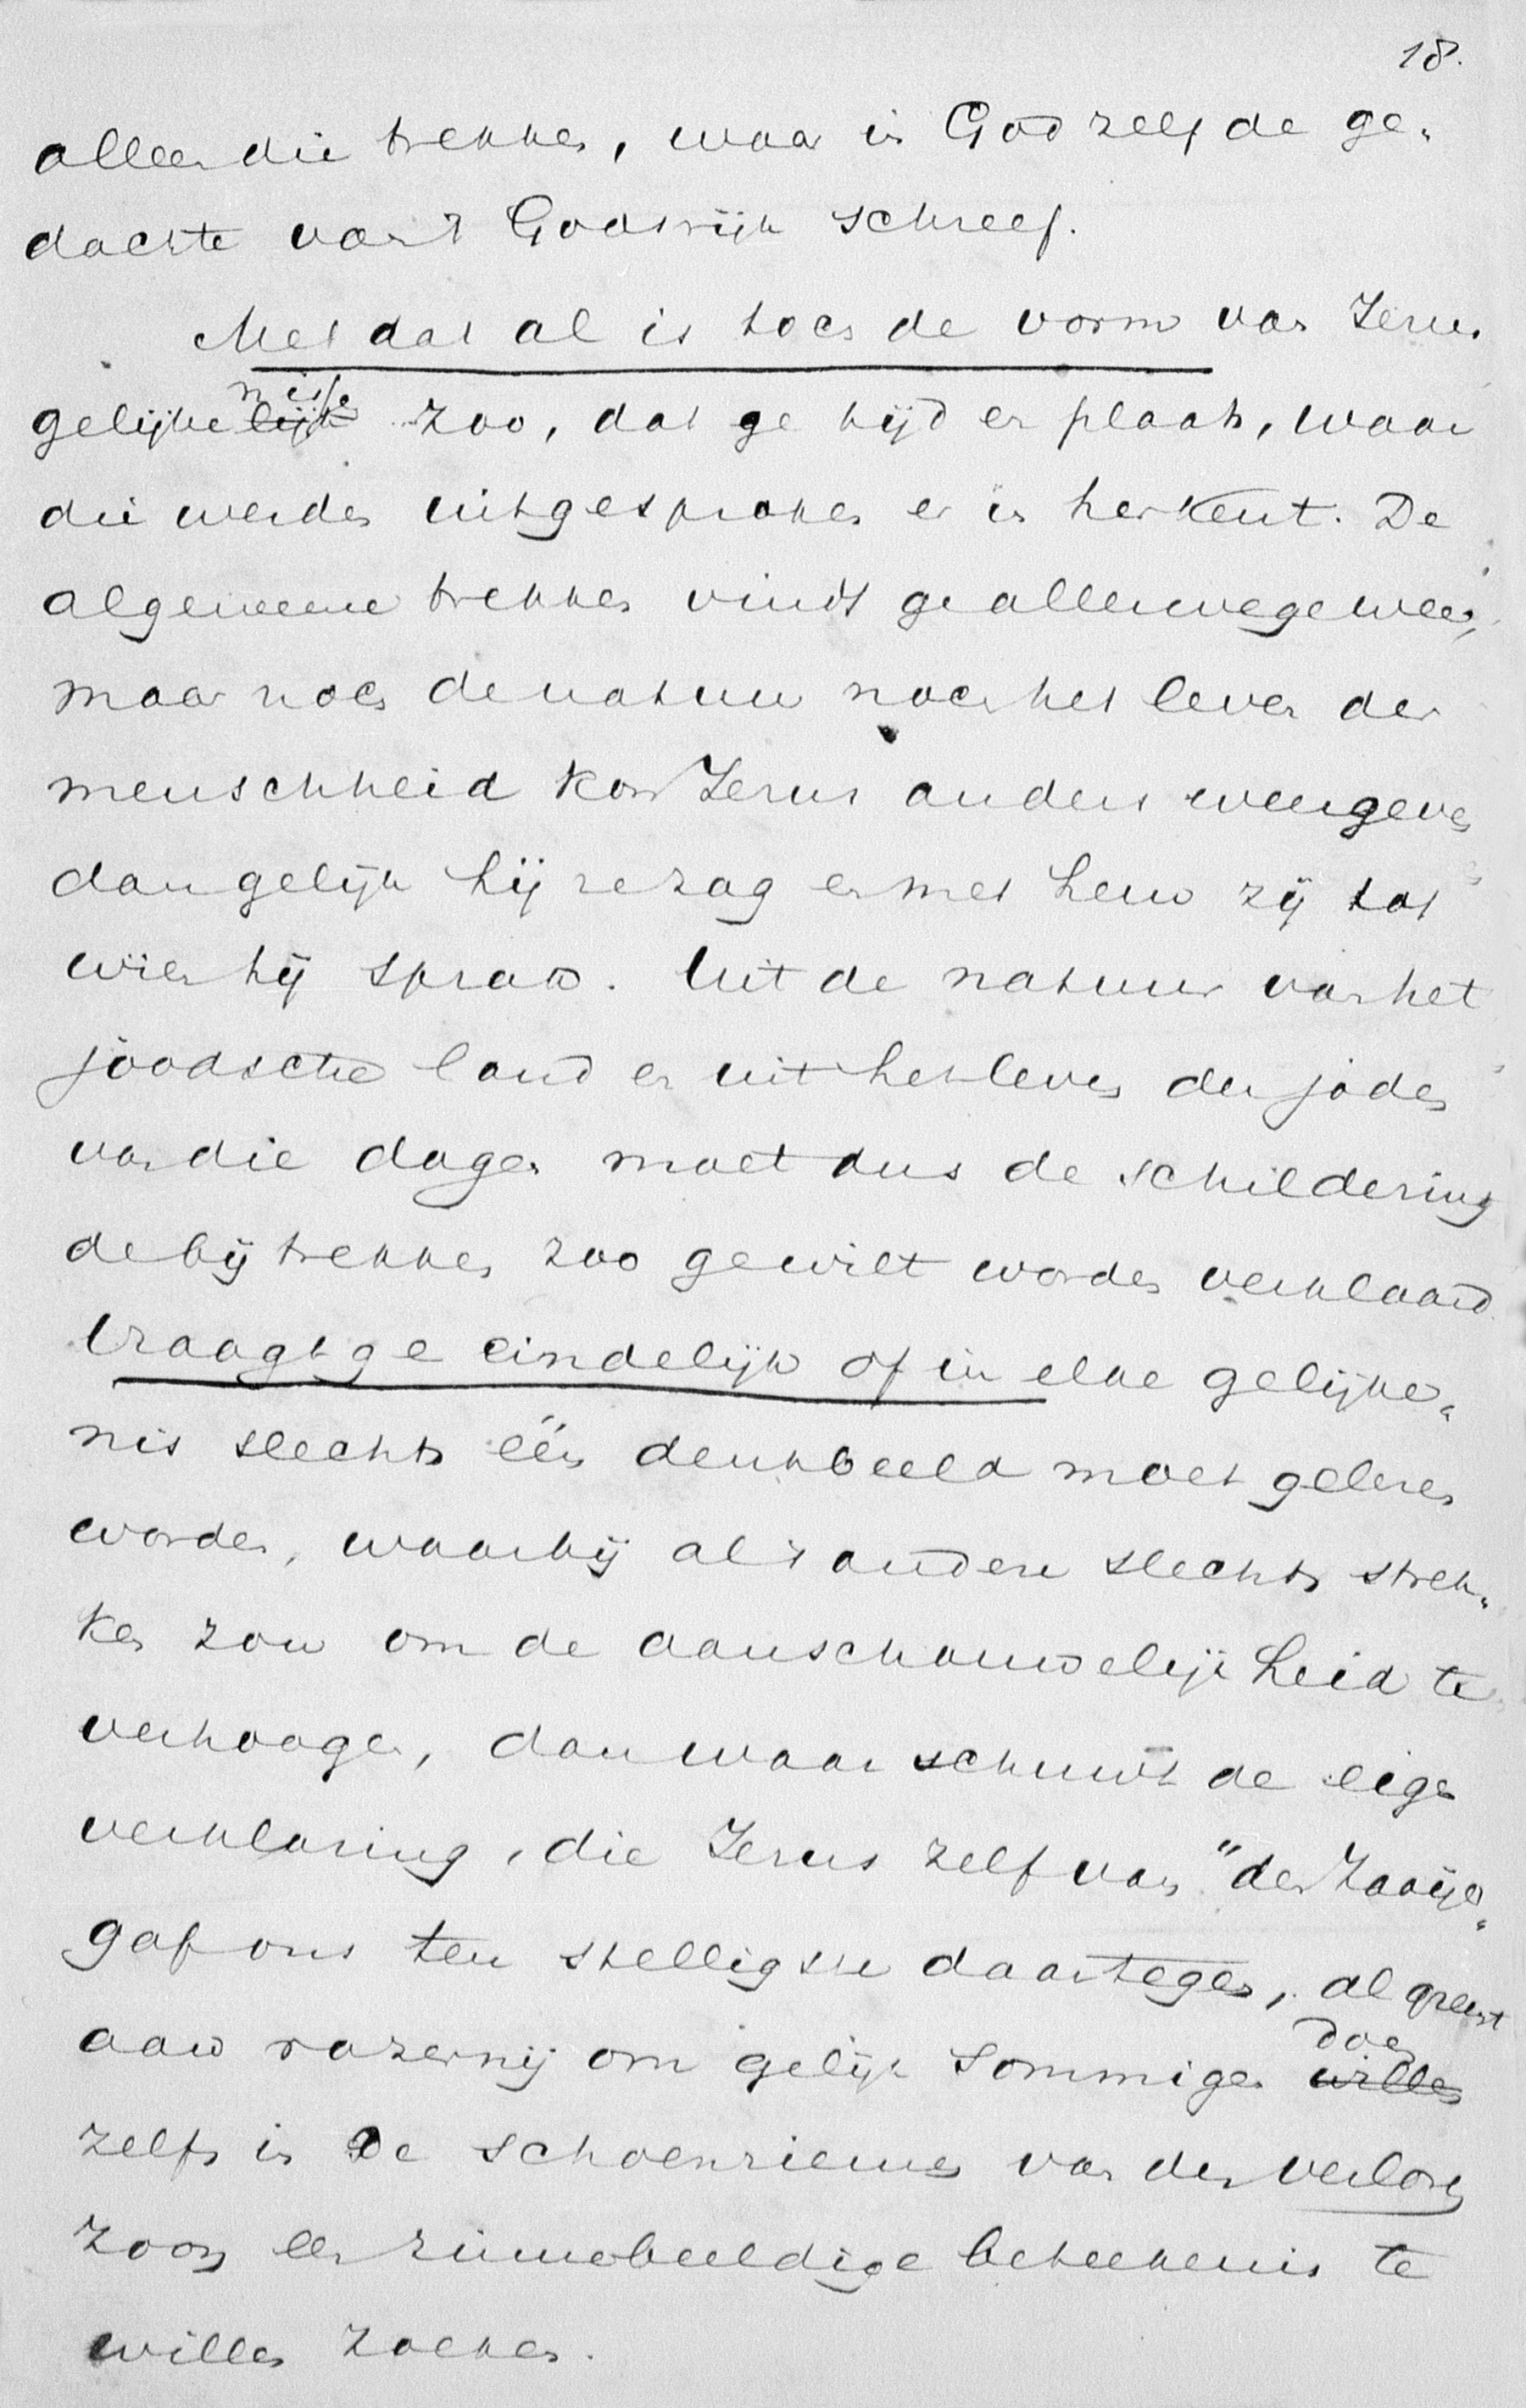 18.
alleen die trekken, waar in God zelf de ge-
dachte van 't Godsrijk schreef.
Met dat al is toch de vorm van Jezus
gelijkenisse zoo, dat ge tijd en plaats, waar
die werden uitgesproken er in herkent. De
algemeene trekken vindt ge allerwege weer,
maar noch de natuur noch het leven der
menschheid kon Jezus anders weergeven
dan gelijk hij ze zag en met hem zij tot
wien hij sprak. Uit de natuur van het
joodsche land en uit het leven der joden
van die dagen moet dus de schildering
de bijtrekken zoo ge wilt worden verklaard.
Vraagt ge eindelijk of in elke gelijke-
nis slechts één denkbeeld moet gelezen
worden, waarbij al 't andere slechts strek-
ken zou om de aanschouwelijkheid te
verhoogen, dan waarschuwt de eigen
verklaring, die Jezus zelf van "den Zaaijer"
gaf ons ten stelligste daartegen, al grenst
aan razernij om gelijk sommigen doen
zelfs in de schoenriemen van den verloren
Zoon een zinnebeeldige beteekenis te
willen zoeken.